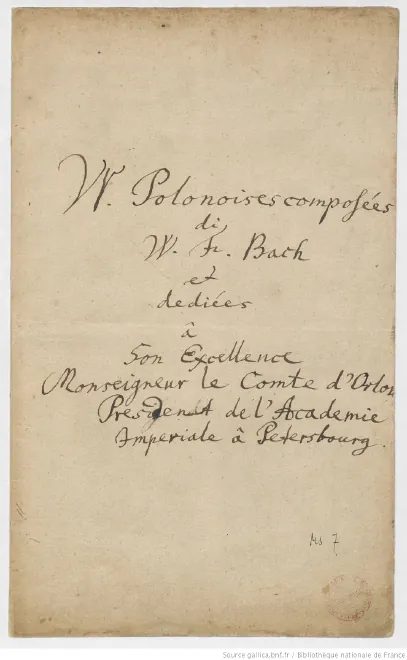 VV. Polonoises composées
di
W. Fr. Bach
et
dediées
à
Son Excellence
Monseigneur le Comte d'Orlow
President de l'Academie
Imperiale à Petersbourg.
Ms 7
Source gallica.bnf.fr / Bibliothèque nationale de France